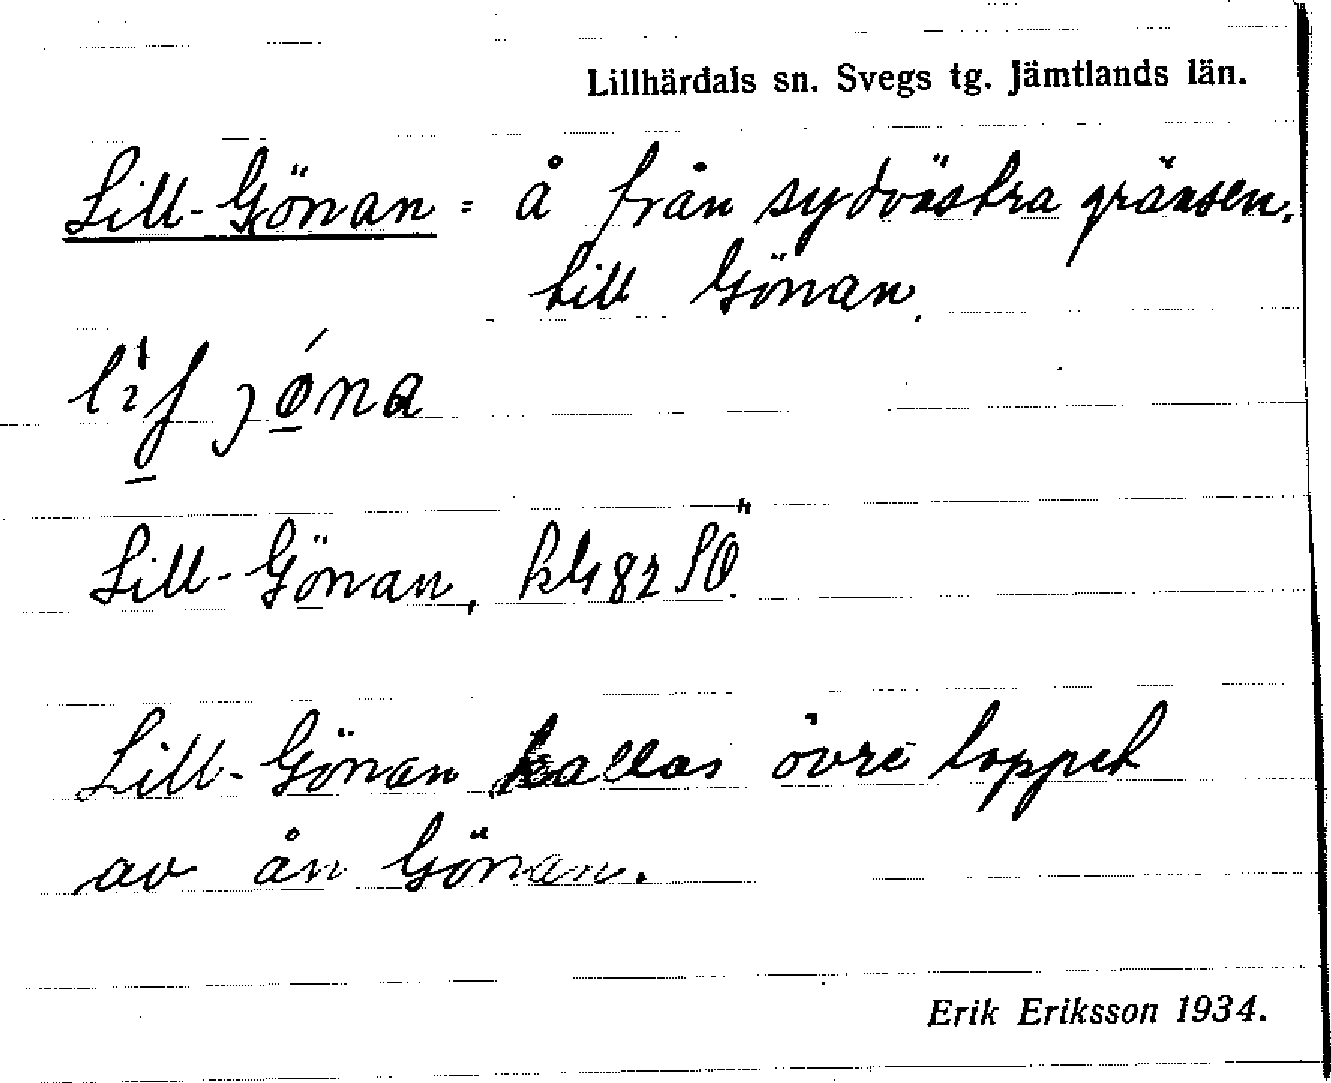 Lillhärdals sn. Svegs tg. Jämtlands län.
Lill-Gönan = å från sydvästra gränsen,
till Gönan.
Lill-Gönan, kbl 82 SO.
Lill-Gönan kallas övre loppet
av ån Gönan.
Erik Eriksson 1934.